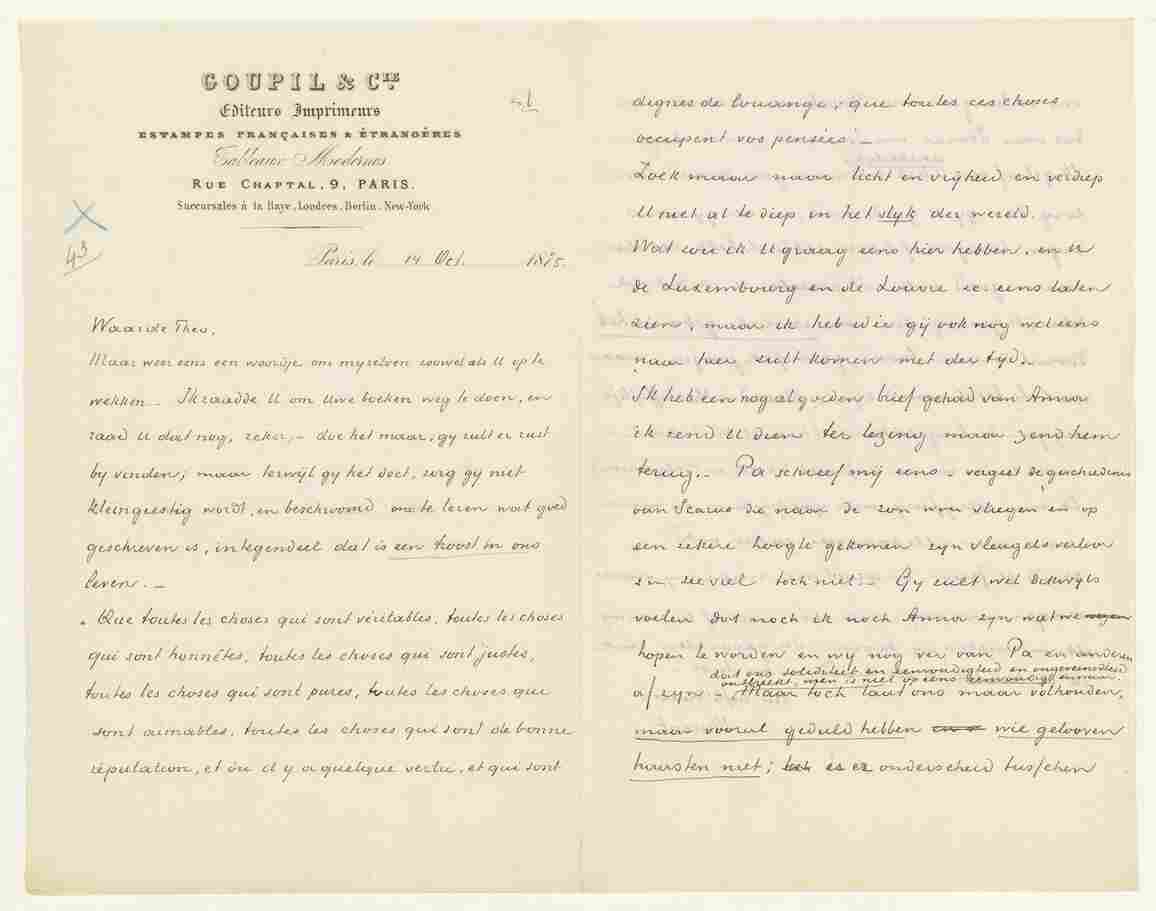 GOUPIL & CIE
Editeurs Imprimeurs
ESTAMPES FRANÇAISES & ÉTRANGÈRES
Tableaux Modernes
RUE CHAPTAL, 9, PARIS.
Succursales à la Haye, Londres, Berlin, New-York
43
Paris le 14 Oct. 1875.
Waarde Theo,
Maar weer eens een woordje om myzelven zoowel als U op te
wekken.— Ik raadde U om Uwe boeken weg te doen, en
raad U dat nog, zeker,— doe het maar, gy zult er rust
by vinden; maar terwyl gy het doet, zorg gy niet
kleingeestig wordt, en beschroomd om te lezen wat goed
geschreven is, integendeel dat is een troost in ons
leven.—
Que toutes les choses qui sont véritables, toutes les choses
qui sont honnêtes, toutes les choses qui sont justes,
toutes les choses qui sont pures, toutes les choses que
sont aimables, toutes les choses qui sont de bonne
réputation, et où il y a quelque vertu, et qui sont
dignes de louange, que toutes ces choses
occupent vos pensées.—
Zoek maar naar licht en vryheid en verdiep
U niet al te diep in het slyk der wereld.
Wat zou ik U graag eens hier hebben, en U
de Luxembourg en de Louvre ec. eens laten
zien, maar ik heb idée gij ook nog wel eens
naar hier zult komen met der tyd.—
Ik heb een nog al goeden brief gehad van Anna
ik zend U dien ter lezing maar zend hem
terug.— Pa schreef mij eens „vergeet de geschiedenis
van Icarus die naar de zon wou vliegen en op
een zekere hoogte gekomen zyn vleugels verloor
en zie viel toch niet.— Gy zult wel dikwyls
voelen dat noch ik noch Anna zyn wat we wezen
hopen te worden en wy nog ver van Pa en anderen
dat ons soliditeit en eenvoudigheid en ongeveinsdheid
ontbreekt, men is niet op eens eenvoudig en waar.
af zyn.— Maar toch laat ons maar volhouden,
maar vooral geduld hebben wie gelooven
haasten niet; toch is er onderscheid tusschen